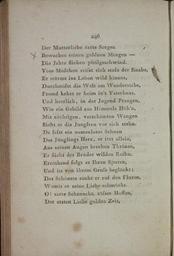 246
Der Mutterliebe zarte Sorgen
Bewachen seinen goldnen Morgen —
Die Jahre fliehen pfeilgeschwind.
Vom Mädchen reißt sich stolz der Knabe,
Er stürmt ins Leben wild hinaus,
Durchmißt die Welt am Wanderstabe,
Fremd kehrt er heim ins Vaterhaus.
Und herrlich, in der Jugend Prangen,
Wie ein Gebild aus Himmels Höh'n,
Mit züchtigen, verschämten Wangen
Sieht er die Jungfrau vor sich stehn.
Da faßt ein namenloses Sehnen
Des Jünglings Herz, er irrt allein,
Aus seinen Augen brechen Thränen,
Er flieht der Brüder wilden Reihn.
Erröthend folgt er ihren Spuren,
Und ist von ihrem Gruß beglückt;
Das Schönste sucht er auf den Fluren,
Womit er seine Liebe schmückt.
O! zarte Sehnsucht, süßes Hoffen,
Der ersten Liebe goldne Zeit,